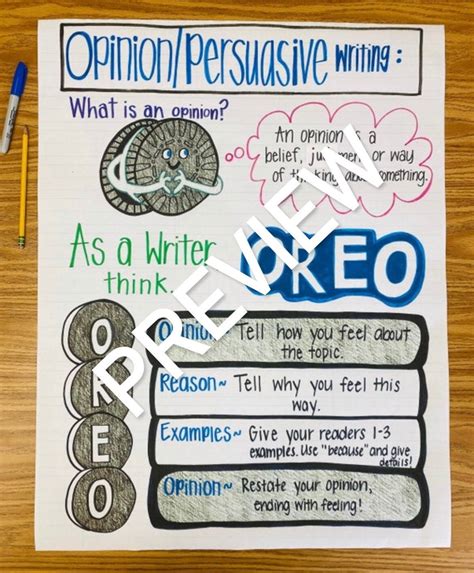 Opinion/Persuasive Writing:
What is an opinion?
An opinion is a
belief, judgment, or way
of thinking about something.
As a Writer
think...
OREO
PREVIEW
O
R
E
O
Opinion~ Tell how you feel about
the topic.
Reason~ Tell why you feel this
way.
Examples~ Give your readers 1-3
examples. Use "because" and give
details!
Opinion~ Restate your opinion,
ending with feeling!